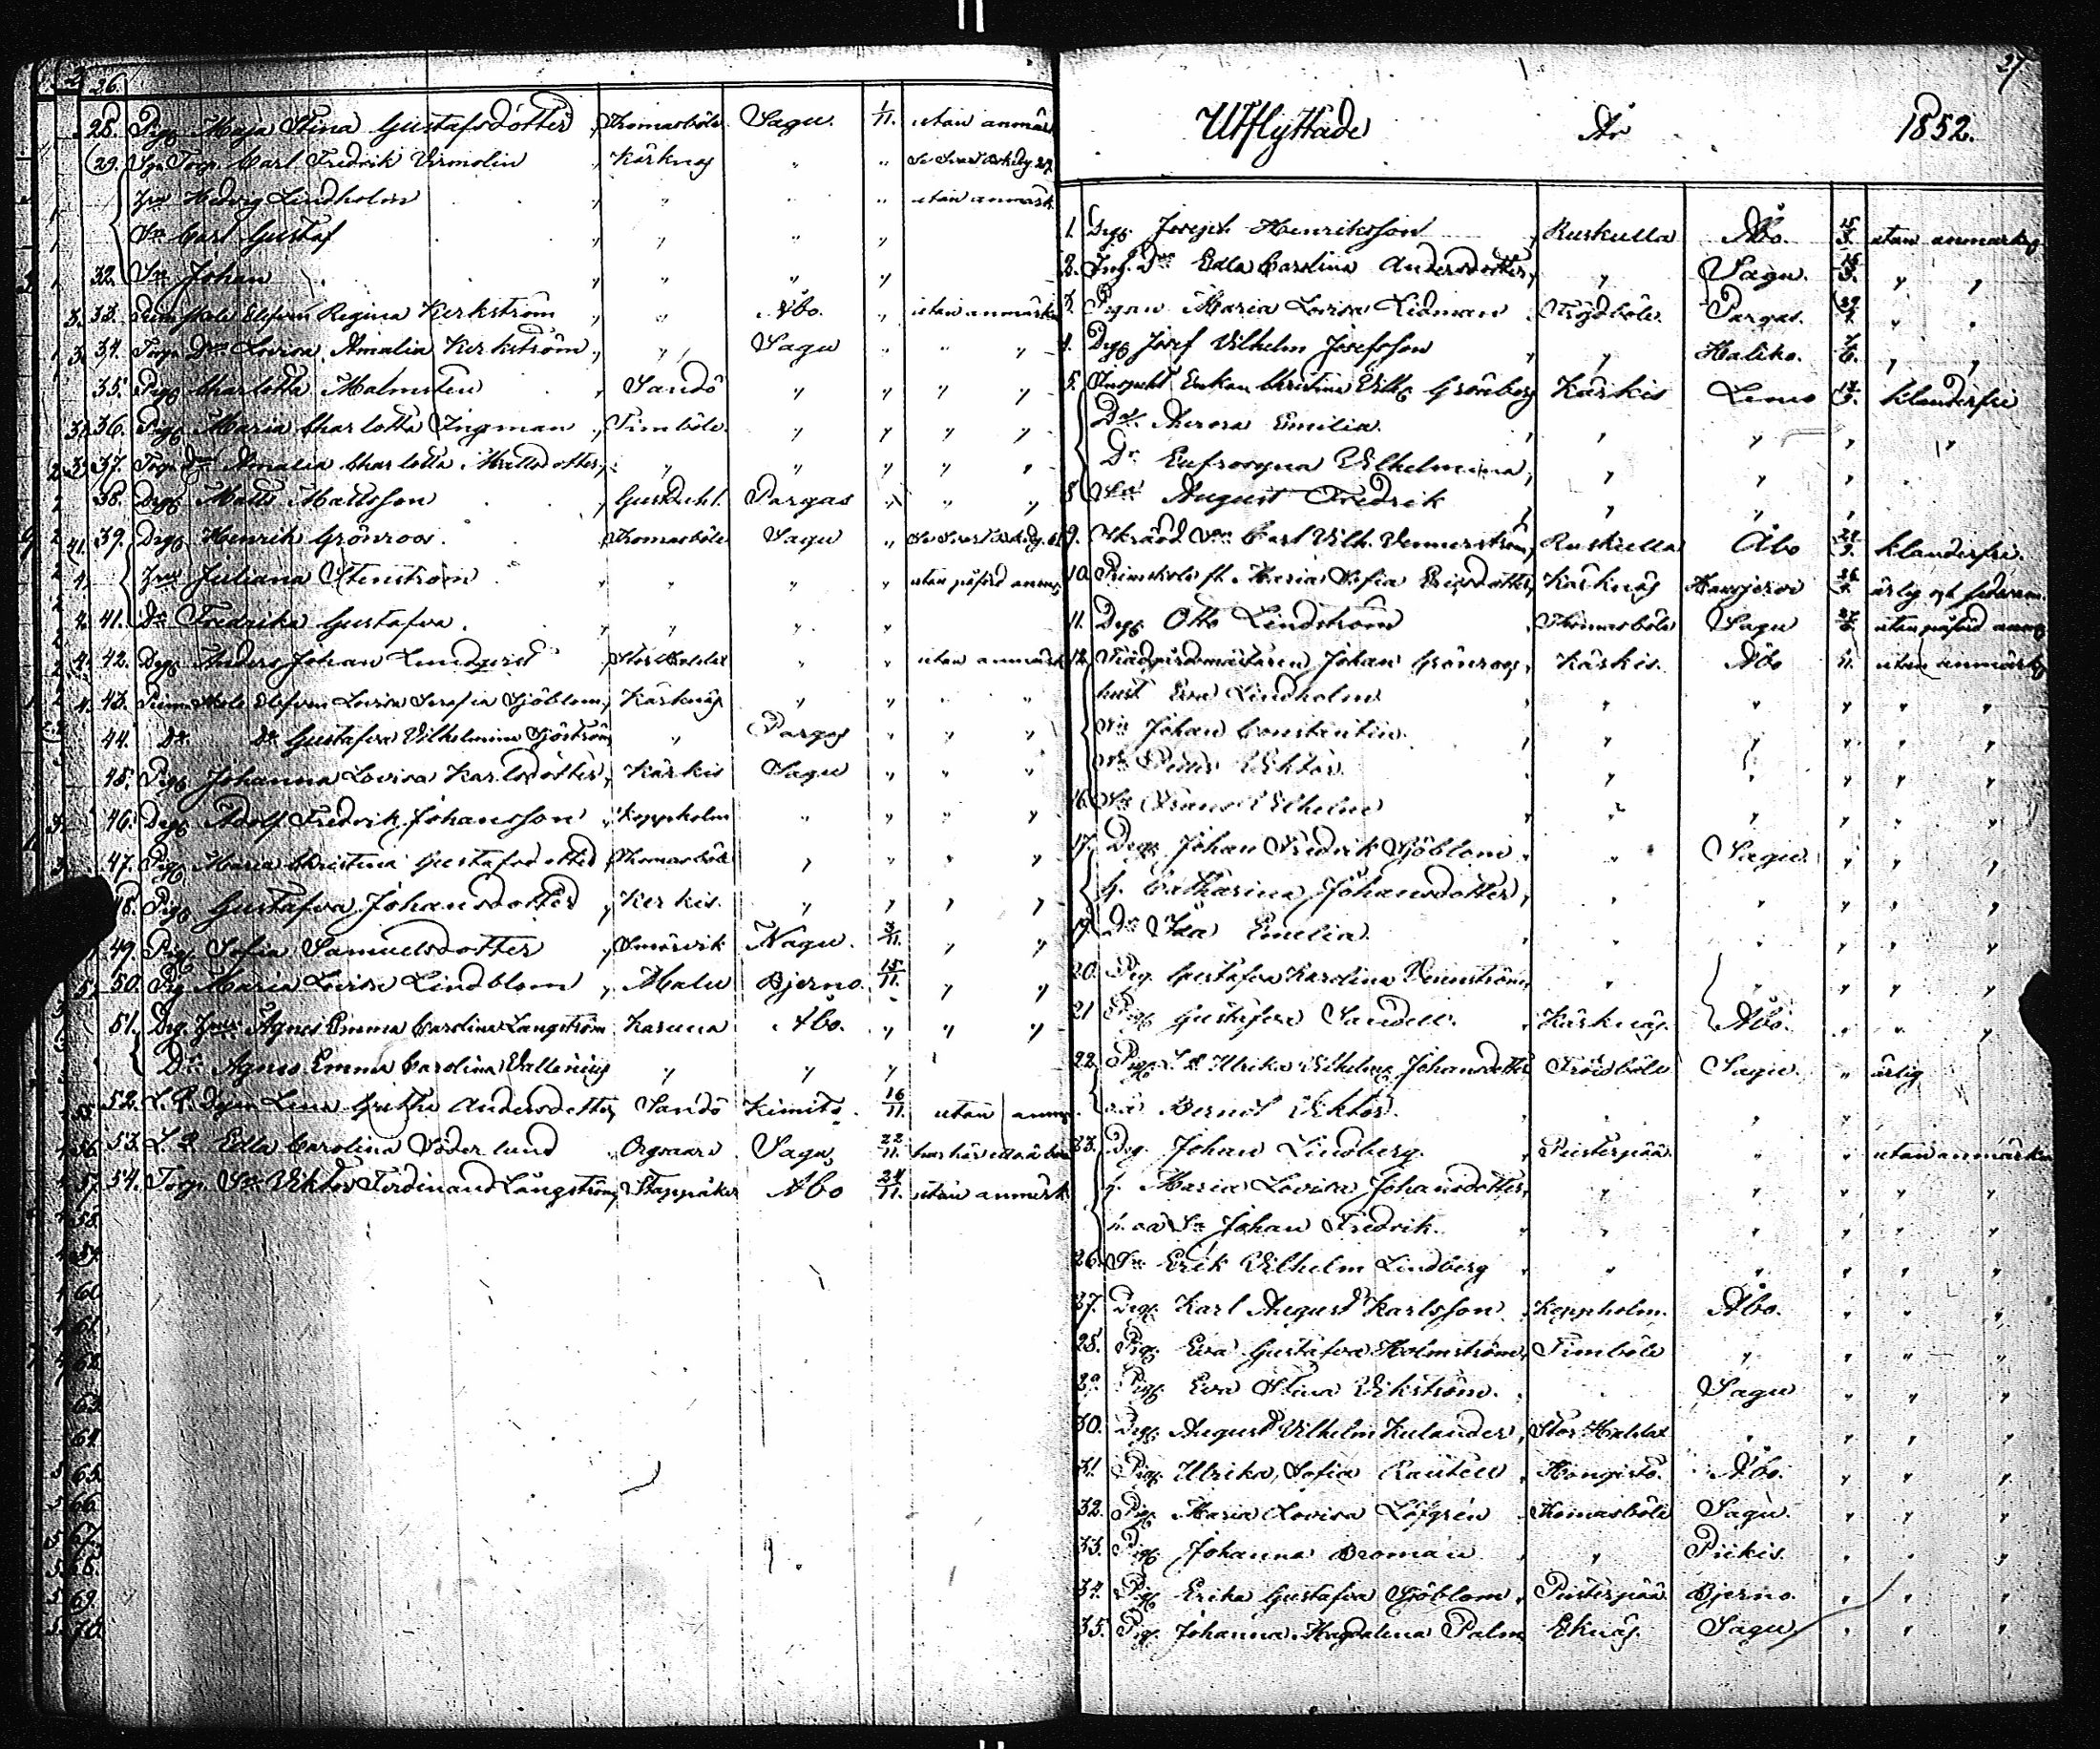 36.
28. Pig. Maja Stina Gustafsdotter, Thomasböle Sagu. 1/11. utan anmärk
29. Torp. Carl Fredrik Virmolin " Kärknäs " "
Hedvig Lindholm " " " " utan anmärk.
Sn Carl Gustaf " " " "
32. Sn Johan " " " "
33. Elefven Regina Kerkström " " Åbo. " utan anmärkn
34. Torp. Dr Lovisa Amalia Kerkström " " Sagu " " "
35. Pig. Charlotta Malmsten " Sandö " " " "
36. Pig. Maria Charlotta Ingman " Timböle. " " " "
37. Torp. Dr Amalia Charlotta Mattsdotter, " " " " "
38. Drg. Matts Mattsson " Pargas " " "
39. Drg. Henrik Grönroos. Thomasböle Sagu "
Juliana Stenström " " " " utan påförd anm
41. Dr Fredrika Gustafva. " " " "
42. Drg. Anders Johan Lundqvist " " utan anmärk
43. Elefven Lovisa Serafia Sjöblom, Kärknäs " " " "
44. Dr. Dr Gustafva Vilhelmina Sjöström " Pargas " " "
45. Pig. Johanna Lovisa Karlsdotter, Kärkis Sagu " " "
46. Drg. Adolf Fredrik Johansson " Koppholm " " " "
47. Pig. Maria Christina Gustafsdotter, Thomasböle " " " "
48. Pig. Gustafva Johansdotter, Kerkis. " " " "
49. Pig. Sofia Samuelsdotter " Smörvik Nagu. 3/11. " "
50. Pig. Maria Lovisa Lindblom " Malu Bjerno. 15/11. " "
51. Drg. Agnes Emma Carolina Langström Karuna Åbo. " " "
Dr Agnes Emma Carolina Vallenius " " "
52. Lena Greta Andersdotter, Sandö Kimito 16/11. utan anm.
53. Edla Carolina Söderlund Sagu, 22/11.
54. Torp. Sn Viktor Ferdinand Långström, Åbo 24/11. utan anmärk.
27
Utflyttade År 1852.
1. Drg. Joseph Henriksson Ruskulla Åbo. 15/3. utan anmärkng
2. Dr Edla Carolina Andersdotter, " Sagu. " "
3. Pigan Maria Lovisa Lidman Tröjdböle. Pargas. " "
4. Drg. Josef Vilhelm Josefsson " " Haliko. " "
5. Inspekt. Enkan Christina Vilh. Grönberg Kärkis Lemo klanderfri
Dr. Aurora Emilia. " " " " "
Dr Eufrosyna Vilhelmina, " " "
8. Sn August Fredrik " " " "
9. Carl Vilh. Vennerström, Ruskulla Åbo klanderfri.
10. Maria Sofia Ericsdotter, Kärknäs ärlig och
11. Drg. Otto Lindström " Thomasböle Sagu utan påförd anm
12. Trädgårdsmästaren Johan Grönroos, Kärkis. Åbo 1/11. utan anmärkg
hust Eva Lindholm " " " " "
Sn Johan Constantin. " " " " " "
Sn Viktor. " " " "
16. Sn Frans Vilhelm " " " " " "
17. Drg. Johan Fredrik Sjöblom " " Sagu. " " "
h. Catharina Johansdotter, " " " " "
19. Dr Ida Emelia. " " " " " "
20. Pig. Gustafva Karolina Vennström, " " " " "
21 Pig. Gustafva Sandell. " Kärknäs. Åbo. " " "
22. Pig. Ulrika Vilhelma Johansdotter Tröidböle Sagu. " ärlig
Bernt Viktor. " " " "
23. Drg. Johan Lindberg. " Pusterpää. " " utan anmärkn
h. Maria Lovisa Johansdotter, " " " " "
Sn Johan Fredrik. " " " " " "
26. Sn Erik Vilhelm Lindberg " " " " " "
27. Drg. Karl August Karlsson. Koppholm. Åbo. " " "
28. Pig. Eva Gustafva Holmström, Timböle " " " "
29. Pig. Eva Stina Vikström. " " Sagu " " "
30. Drg. August Vilhelm Kulander, " " " "
31. Pig. Ulrika Sofia Rautell " Hongisto. Åbo. " " "
32. Pig. Maria Lovisa Löfgrén Thomasböle Sagu. " " "
33. Pig. Johanna Broman " " Piikis. " " "
34. Pig. Erika Gustafva Sjöblom, Pusterpää. Bjerno. " " "
35. Pig. Johanna Magdalena Palm Eknäs. Sagu " " "